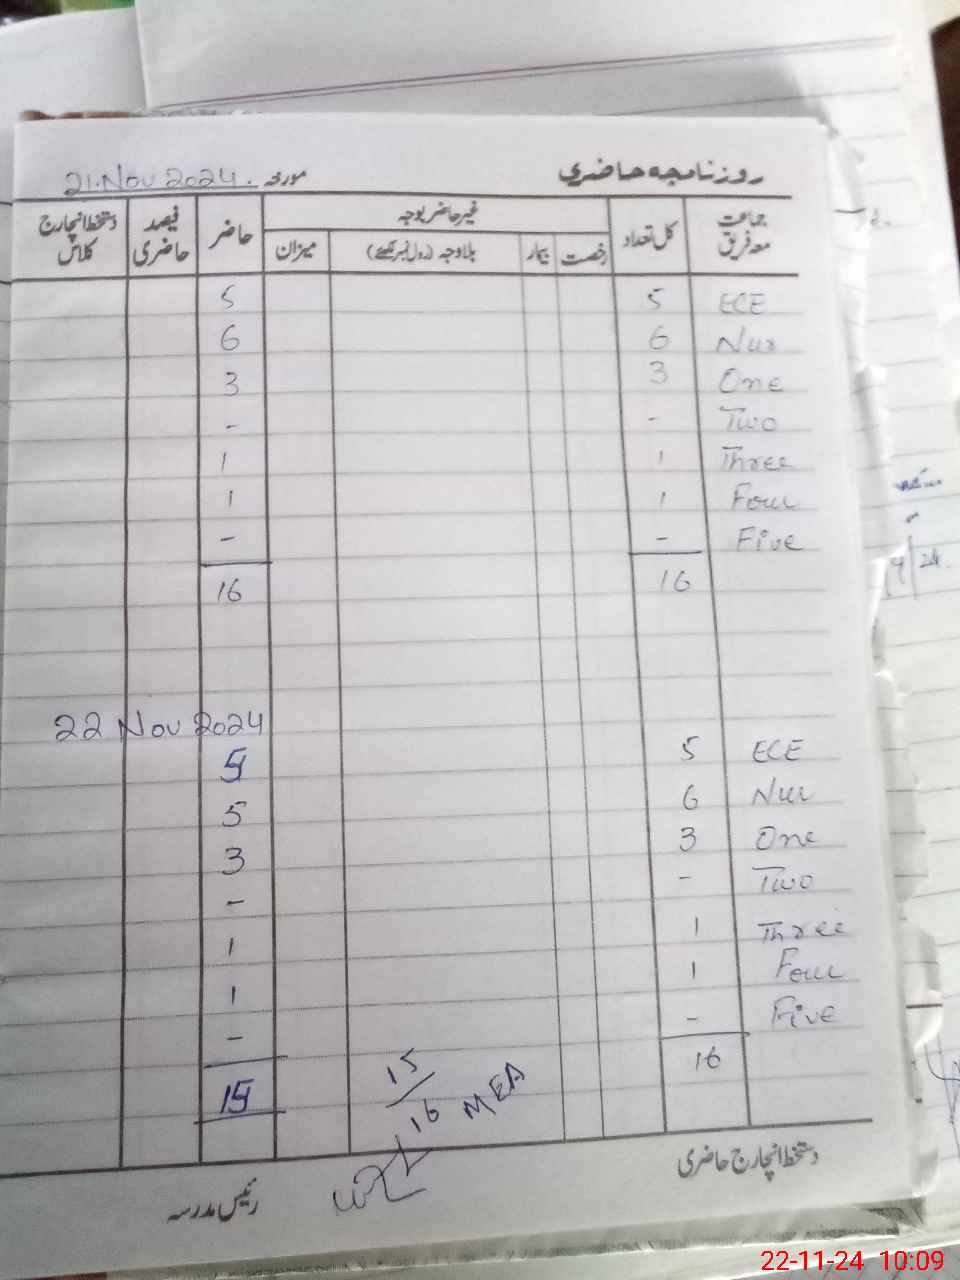 روزنامچہ حاضری مورخہ 21.Nov 2024.
جماعت معہ فریق کل تعداد غیر حاضر بوجہ حاضر فیصد حاضری دستخط انچارج کلاس
رخصت بیمار بلاوجہ (رول نمبر لکھئے) میزان
ECE 5 5
Nur 6 6
One 3 3
Two - -
Three 1 1
Four 1 1
Five - -
16 16
22 Nov 2024
ECE 5 5
Nur 6 5
One 3 3
Two - -
Three 1 1
Four 1 1
Five - -
16 15
15/16 MEA
دستخط انچارج حاضری
رئیس مدرسہ
22-11-24 10:09